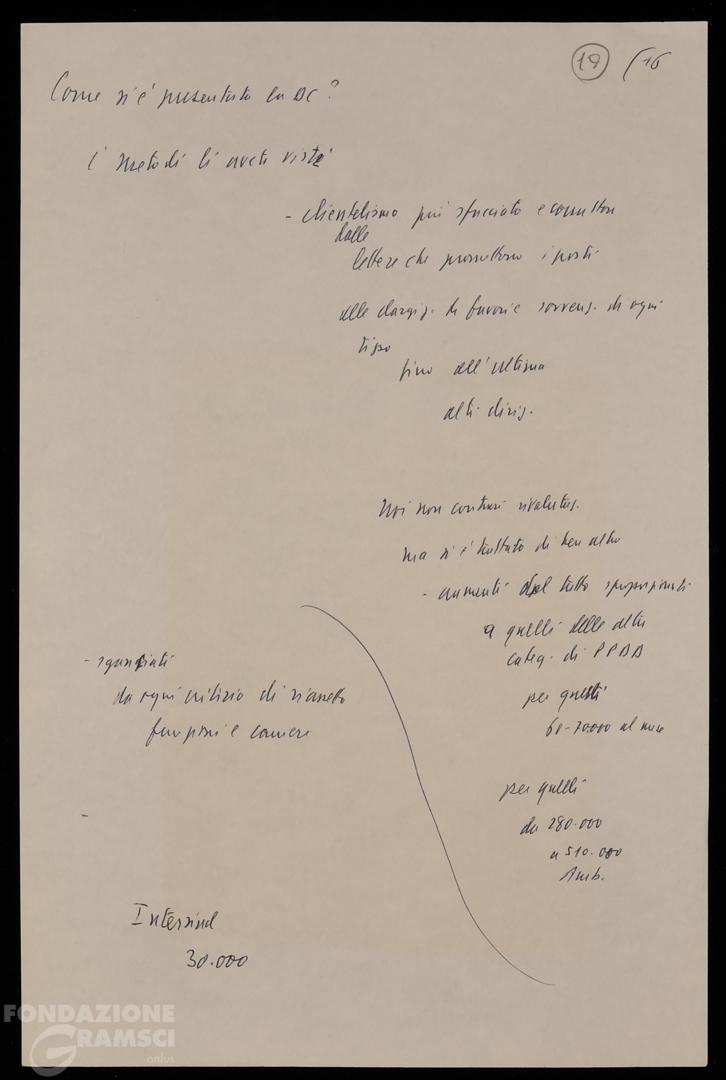 19 (16
Come si è presentata la DC?
I metodi li avete visti
- clientelismo più sfacciato e corruttore
dalle
lettere che promettono i posti
alle elargiz. di favori e sovvenz. di ogni
tipo
fino all'ultima
alti dirig.
Noi non contrari rivalutaz.
ma si è trattato di ben altro
- aumenti del tutto sproporzionati
a quelli delle altre
categ. di PPDD
per questi
60-70.000 al mese
per quelli
da 280.000
a 510.000
Amb.
- sganciati
da ogni criterio di riassetto
funzioni e carriere
-
Intersind
30.000
FONDAZIONE
GRAMSCI
onlus